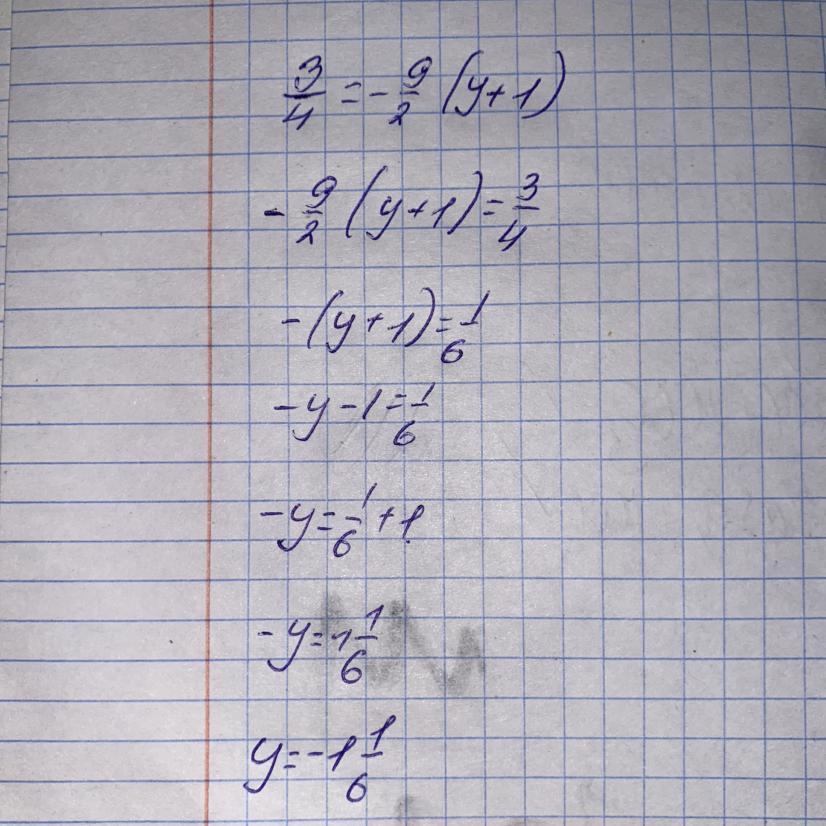 3/4 = - 9/2 (y+1)
- 9/2 (y+1) = 3/4
- (y+1) = 1/6
- y - 1 = 1/6
- y = 1/6 + 1
- y = 1 1/6
y = - 1 1/6